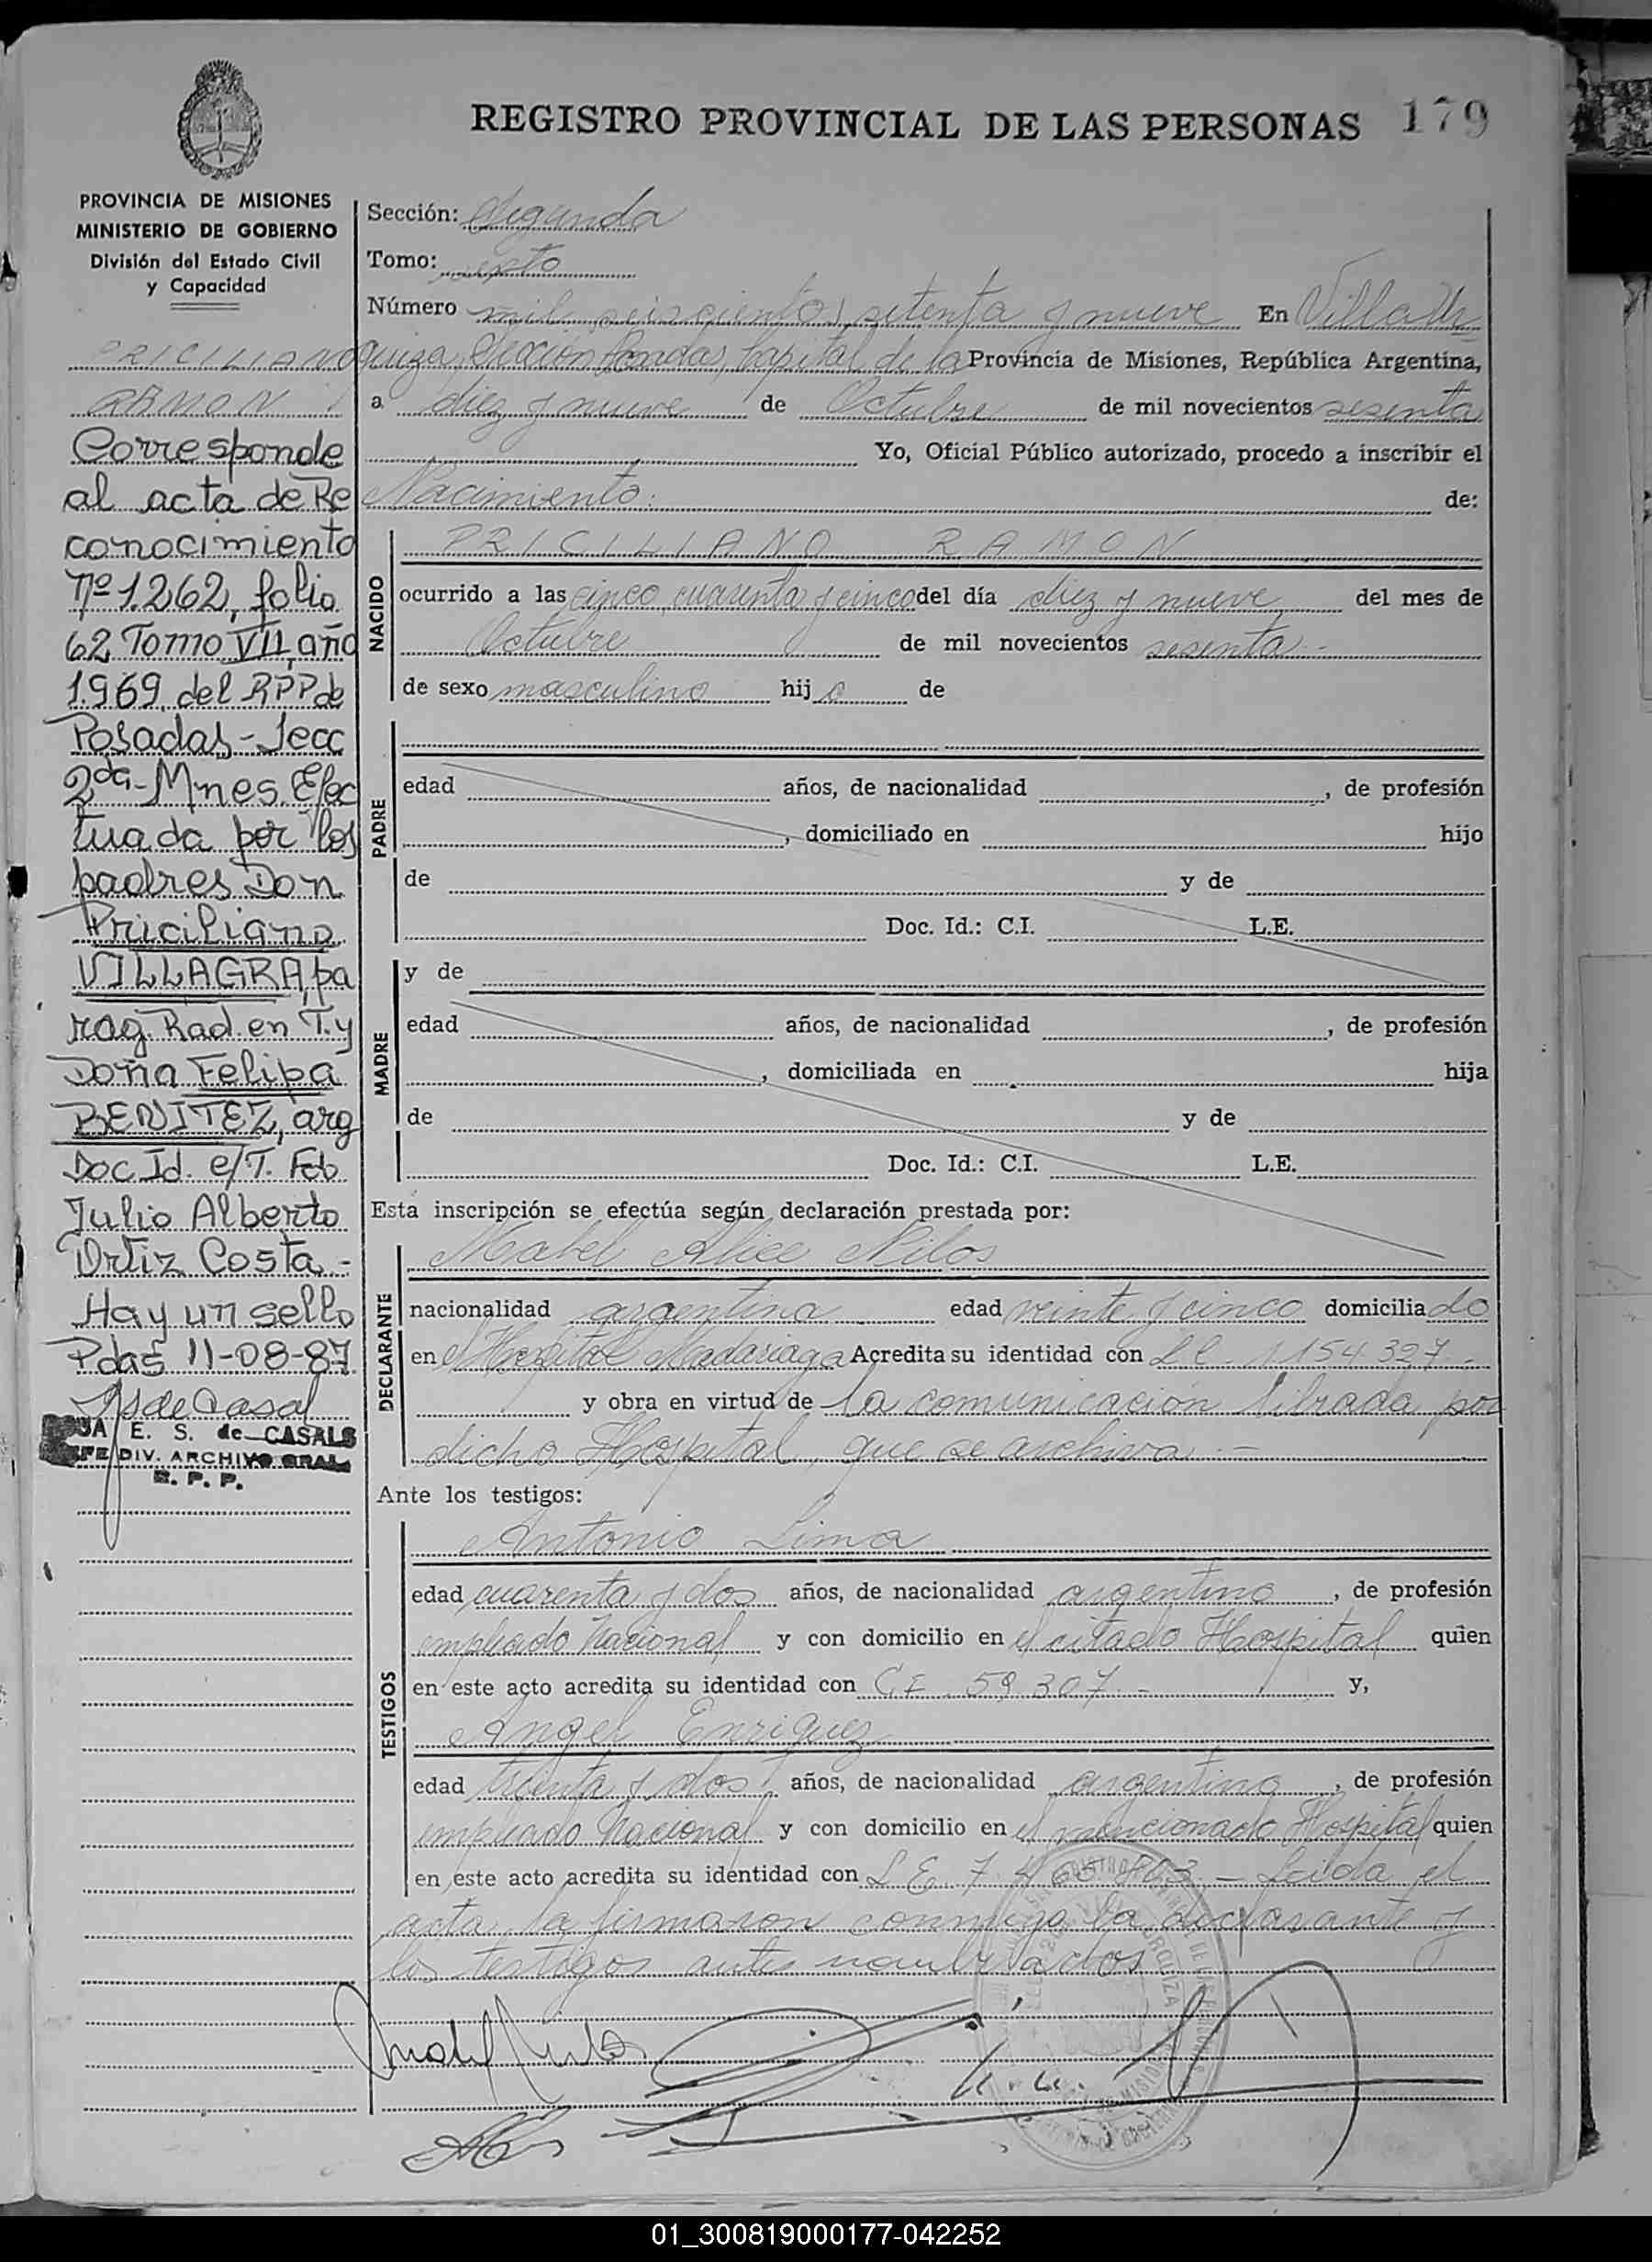 REGISTRO PROVINCIAL DE LAS PERSONAS 179
PROVINCIA DE MISIONES
MINISTERIO DE GOBIERNO
División del Estado Civil
y Capacidad
PRICILIANO
RAMON
Corresponde
al acta de Re
conocimiento
Nº 1.262, folio
62 Tomo VII, año
1.969 del RPP de
Posadas - Secc
2da - Mnes. Efec
tuada por los
padres Don
Priciliano
VILLAGRA, pa
rag. Rad. en T. y
Doña Felipa
BENITEZ, arg
Doc Id. e/T. Fdo
Julio Alberto
Ortiz Costa.-
Hay un sello
Pdas 11-08-87
E. S. de CASALS
DIV. ARCHIVO GRAL
R. P. P.
Sección: Segunda
Tomo: sexto
Número mil seiscientos setenta y nueve En Villa Ur
quiza, Sección Posadas, Capital de la Provincia de Misiones, República Argentina,
a diez y nueve de Octubre de mil novecientos sesenta
Yo, Oficial Público autorizado, procedo a inscribir el
Nacimiento: de:
NACIDO
PRICILIANO RAMON
ocurrido a las cinco cuarenta y cinco del día diez y nueve del mes de
Octubre de mil novecientos sesenta.-
de sexo masculino hijo de
PADRE
edad años, de nacionalidad , de profesión
, domiciliado en hijo
de y de
Doc. Id.: C.I. L.E.
MADRE
y de
edad años, de nacionalidad , de profesión
, domiciliada en hija
de y de
Doc. Id.: C.I. L.E.
Esta inscripción se efectúa según declaración prestada por:
DECLARANTE
Mabel Alice Nilos
nacionalidad argentina edad veinte y cinco domiciliado
en el Hospital Madariaga Acredita su identidad con LC. 1154.327.-
y obra en virtud de la comunicación librada por
dicho Hospital, que se archiva.-
Ante los testigos:
TESTIGOS
Antonio Lima
edad cuarenta y dos años, de nacionalidad argentino , de profesión
empleado Nacional y con domicilio en el citado Hospital quien
en este acto acredita su identidad con C.I. 59.307.- y,
Angel Enriquez
edad treinta y dos años, de nacionalidad argentino , de profesión
empleado Nacional y con domicilio en el mencionado Hospital quien
en este acto acredita su identidad con L.E. - Leida el
acta, la firmaron conmigo la declarante y
los testigos antes nombrados
01_300819000177-042252